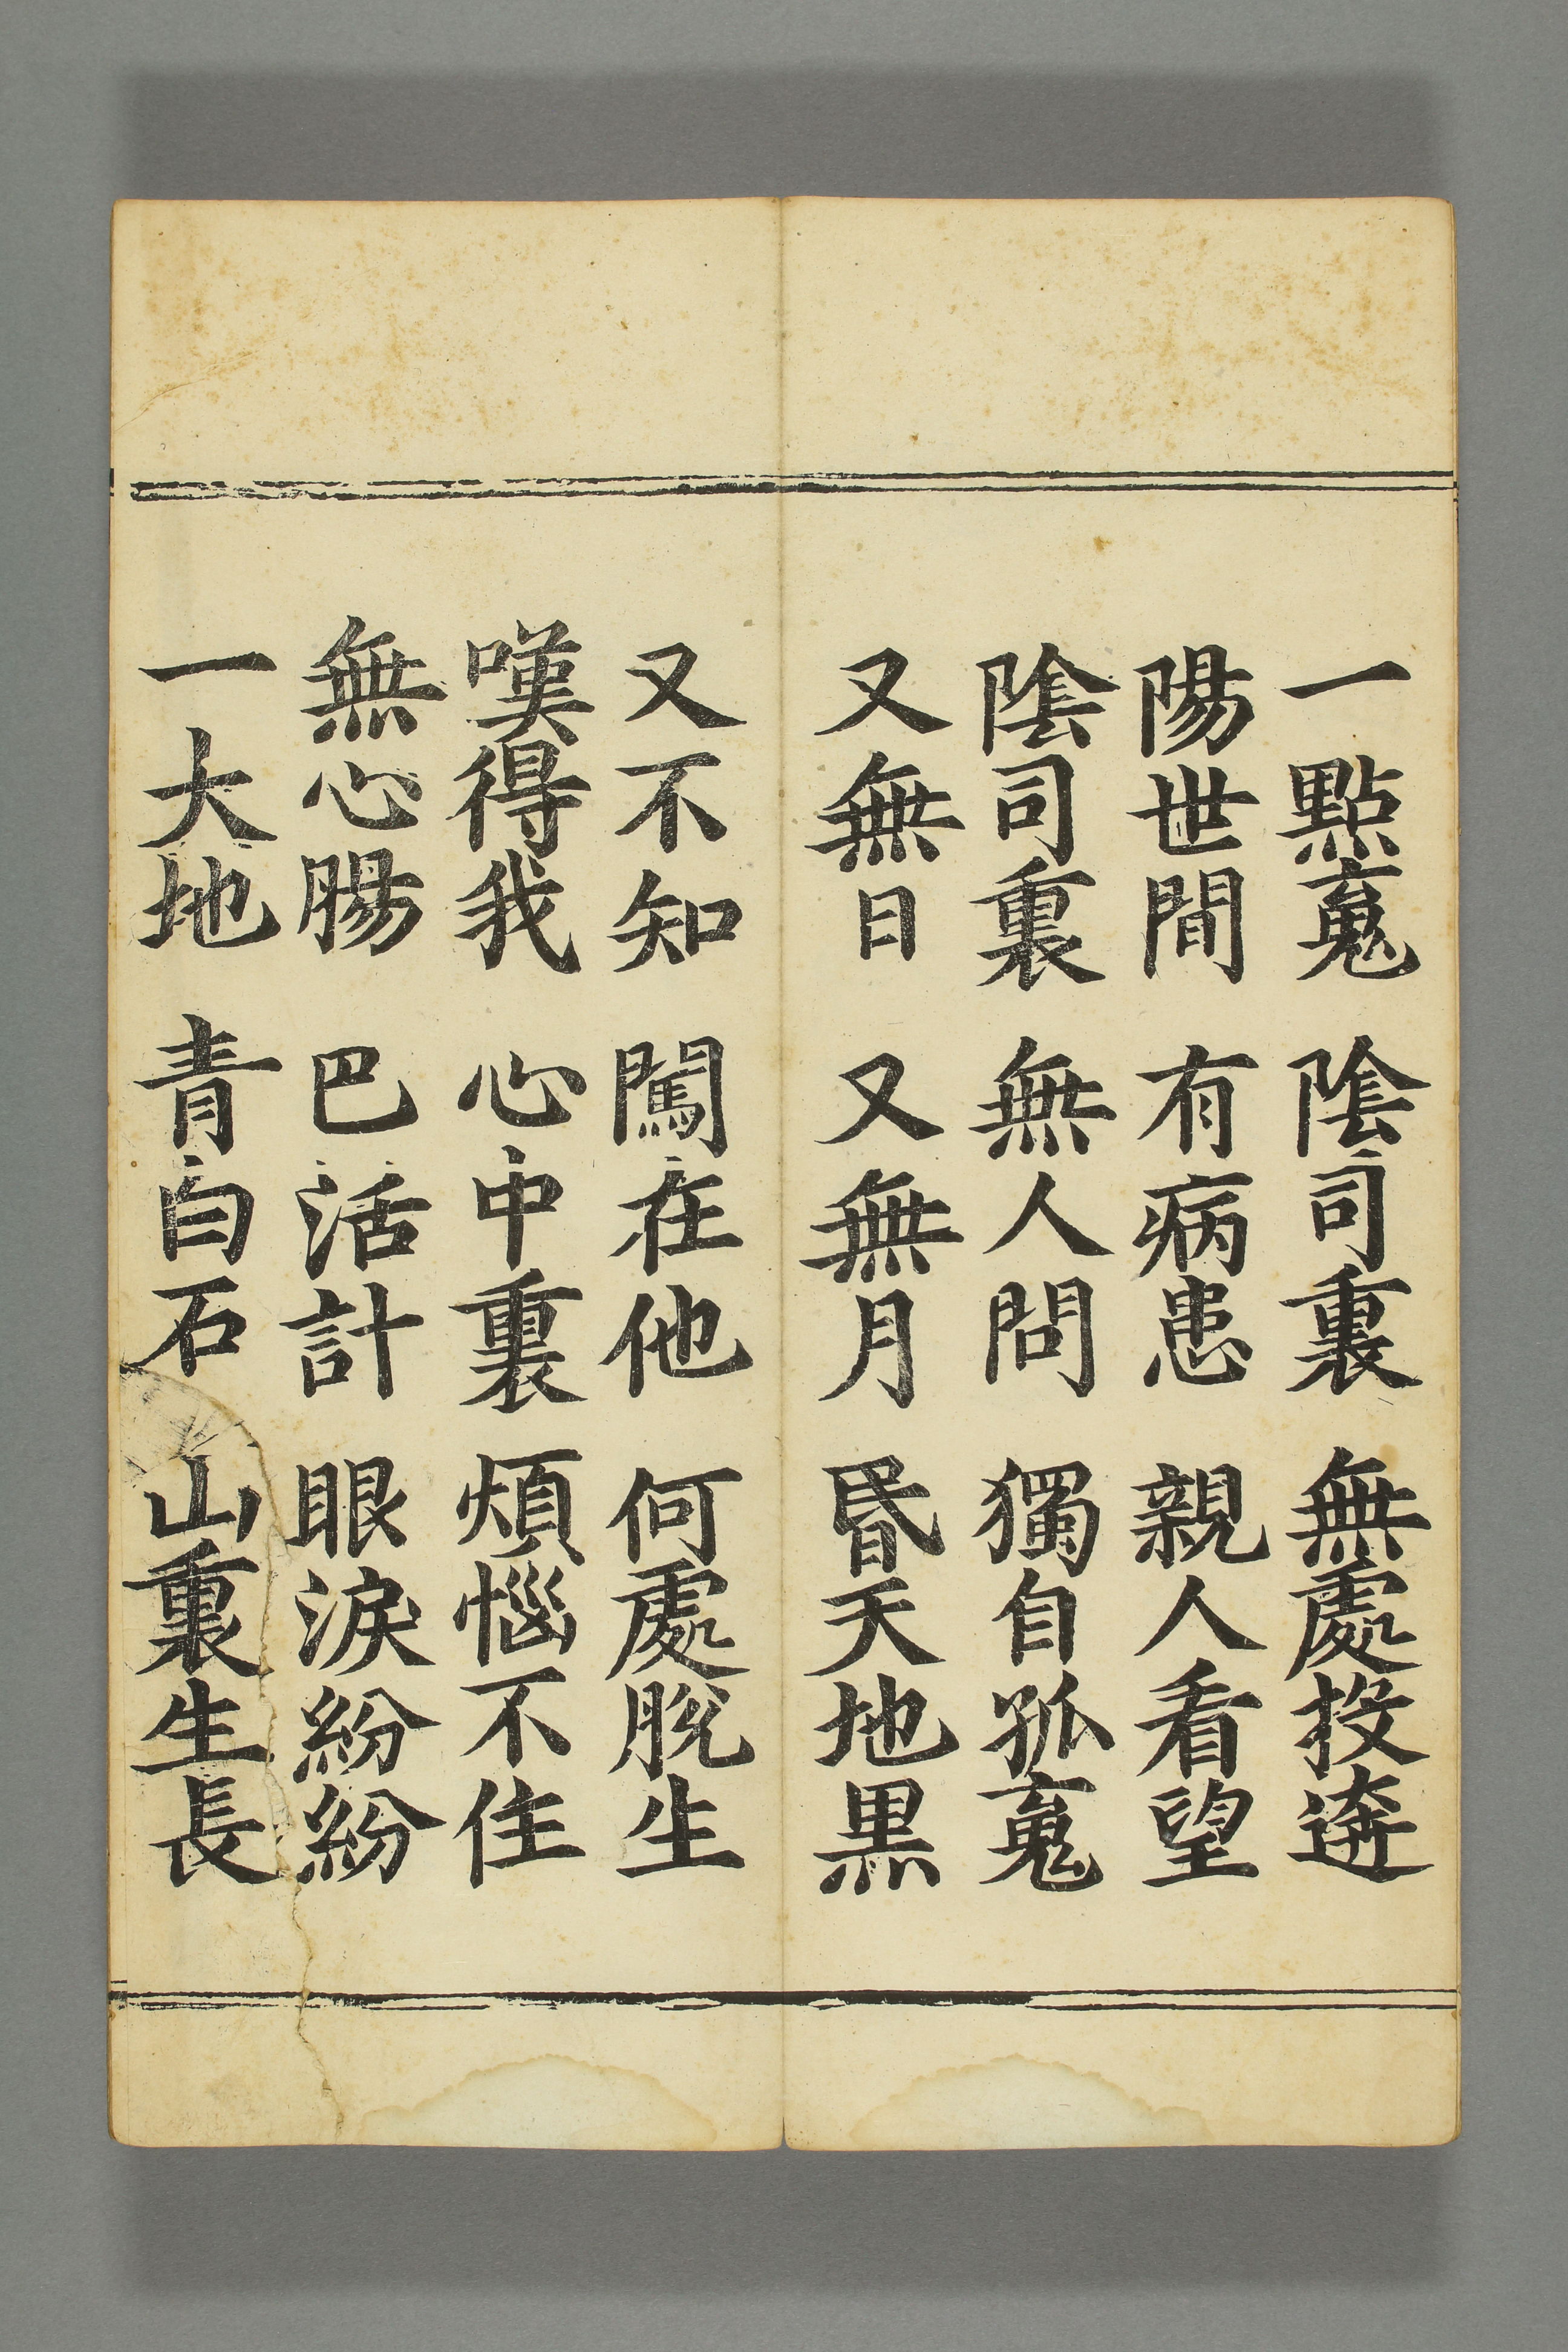 一點䰟 陰司裏 無處投逩
陽世間 有病患 親人看望
陰司裏 無人問 獨自孤䰟
又無日 又無月 昬天地黒
又不知 闖在他 何處脫生
嘆得我 心中裏 煩惱不住
無心腸 巴活計 眼淚紛紛
一大地 青白石 山裏生長